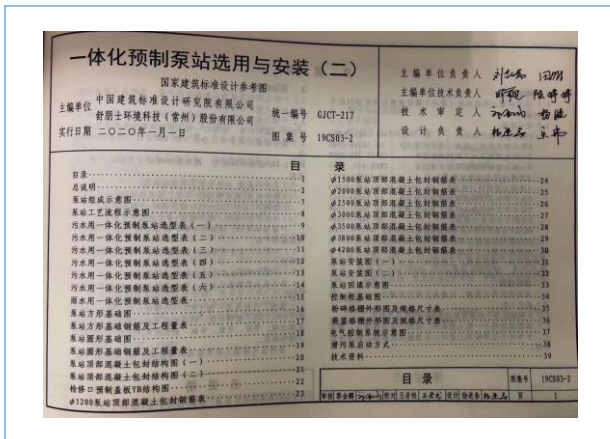 一体化预制泵站选用与安装（二）
国家建筑标准设计参考图
主编单位 中国建筑标准设计研究院有限公司
舒朋士环境科技（常州）股份有限公司
实行日期 二〇二〇年一月一日
统一编号 GJCT-217
图集号 19CS03-2
主编单位负责人
主编单位技术负责人
技术审定人
设计负责人
目 录
目录 1
总说明 2
泵站组成示意图 7
泵站工艺流程示意图 8
污水用一体化预制泵站选型表（一） 9
污水用一体化预制泵站选型表（二） 10
污水用一体化预制泵站选型表（三） 11
污水用一体化预制泵站选型表（四） 12
污水用一体化预制泵站选型表（五） 13
污水用一体化预制泵站选型表（六） 14
雨水用一体化预制泵站选型表 15
泵站方形基础图 16
泵站方形基础钢筋及工程量表 17
泵站圆形基础图 18
泵站圆形基础钢筋及工程量表 19
泵站顶部混凝土包封结构图（一） 20
泵站顶部混凝土包封结构图（二） 21
检修口预制盖板YB结构图 22
φ1200泵站顶部混凝土包封钢筋表 23
φ1500泵站顶部混凝土包封钢筋表 24
φ2000泵站顶部混凝土包封钢筋表 25
φ2500泵站顶部混凝土包封钢筋表 26
φ3000泵站顶部混凝土包封钢筋表 27
φ3500泵站顶部混凝土包封钢筋表 28
φ3800泵站顶部混凝土包封钢筋表 29
φ4200泵站顶部混凝土包封钢筋表 30
泵站安装图（一） 31
泵站安装图（二） 32
泵站回填示意图 33
控制柜基础图 34
粉碎格栅外形图及规格尺寸表 35
提篮格栅外形图及规格尺寸表 36
电气控制系统示意图 37
潜污泵启动方式 38
技术资料 39
目 录 图集号 19CS03-2
审核 校对 设计 页 1